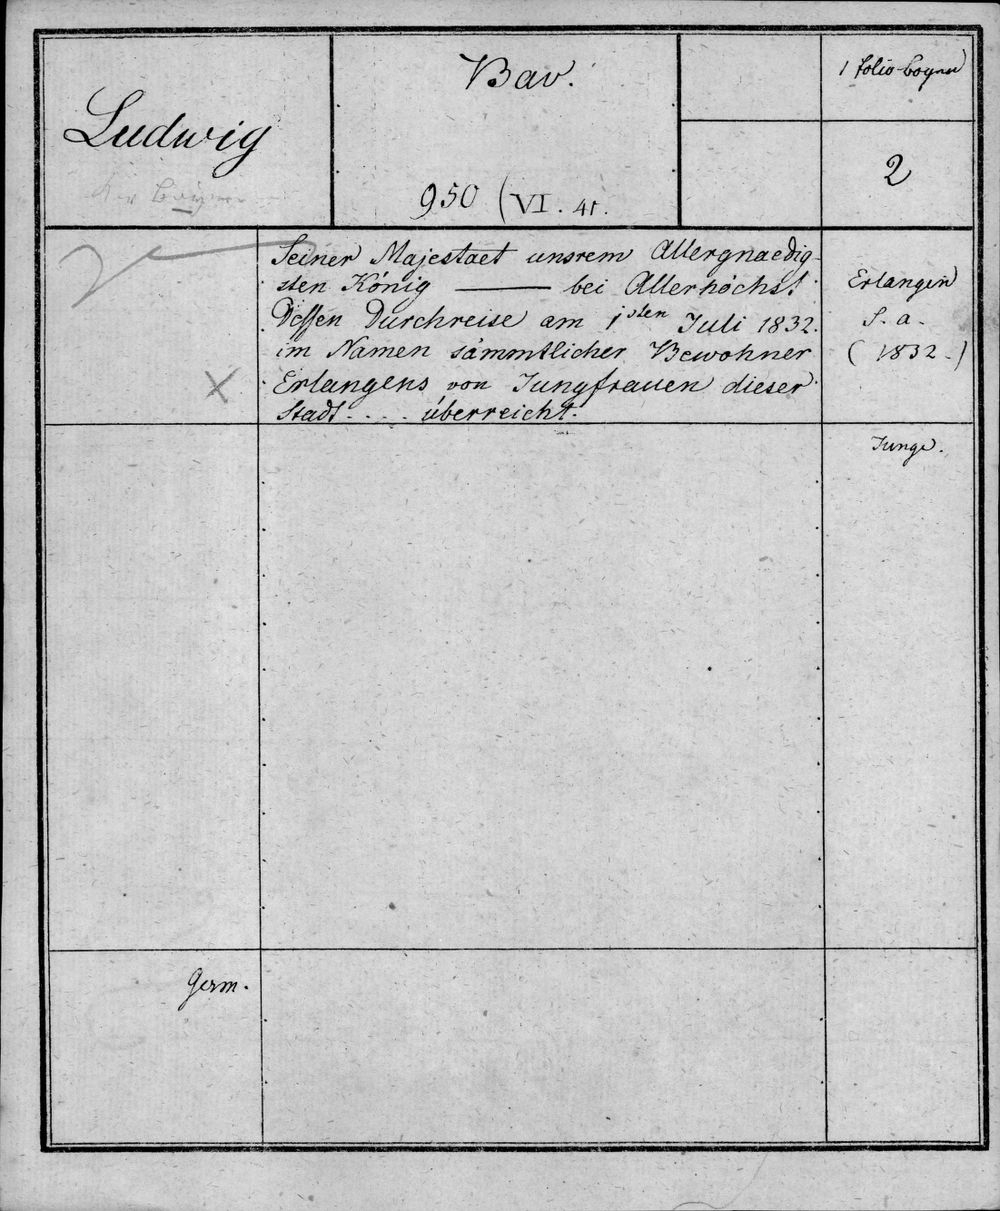 Ludwig
Bav.
950 (VI. 41.
1 folio-bogen
2
Seiner Majestaet unsrem Allergnaedig-
sten König ——— bei Allerhöchst
Dessen Durchreise am 1sten Juli 1832.
im Namen sämmtlicher Bewohner
Erlangens von Jungfrauen dieser
Stadt .... überreicht.
Erlangen
S. a.
(1832.)
Junge.
Germ.